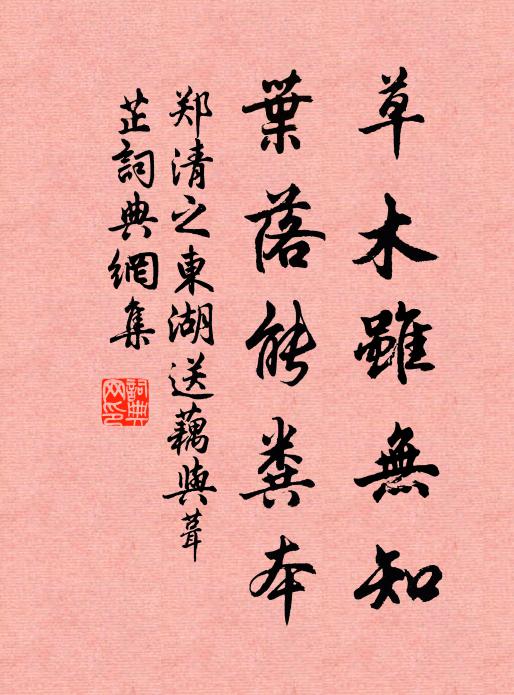 草木雖無知
葉落能糞本
郑清之東湖送藕與葺
芷詞典網集
詞典
网印